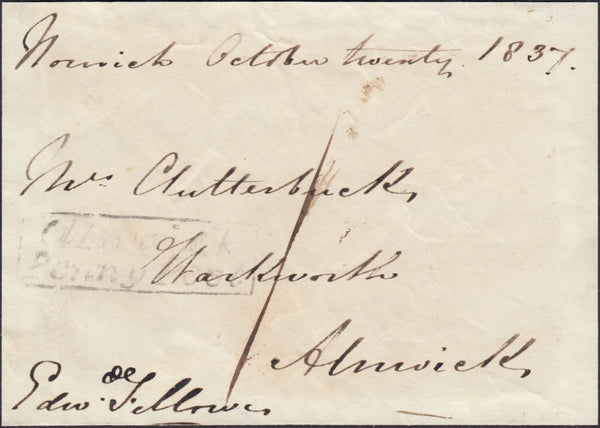 Norwich October twenty 1837.
Mrs Clutterbuck
Warkworth
Alnwick
Penny Post
1
Alnwick
Edwd. Fellowes